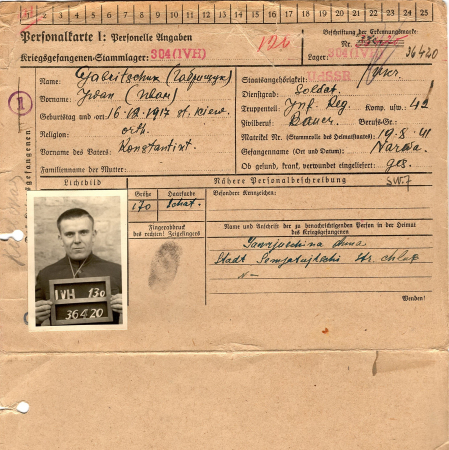 1 2 3 4 5 6 7 8 9 10 11 12 13 14 15 16 17 18 19 20 21 22 23 24 25
Personalkarte I: Personelle Angaben
Kriegsgefangenen-Stammlager: 304 (IVH)
126
Beschriftung der Erkennungsmarke
Nr. 36420
Lager: 304 (IVH)
Name: Gabritschuk
Vorname: Iwan (Иван)
Geburtstag und -ort: 16.12.1917
Religion: orth.
Vorname des Vaters: Konstantin
Familienname der Mutter:
Staatsangehörigkeit: UdSSR
Dienstgrad: Soldat.
Truppenteil: Inf. Reg. Komp. usw.: 42
Zivilberuf: Bauer. Berufs-Gr.:
Matrikel Nr. (Stammrolle des Heimatstaates):
Gefangennahme (Ort und Datum): 19.8.41 Narwa.
Ob gesund, krank, verwundet eingeliefert: ges.
1
des Kriegsgefangenen
Lichtbild
Nähere Personalbeschreibung
Größe
Haarfarbe
Besondere Kennzeichen:
170
Fingerabdruck
des rechten! Zeigefingers
Name und Anschrift der zu benachrichtigenden Person in der Heimat
des Kriegsgefangenen
Stadt
Wenden!
IVH 130
36420